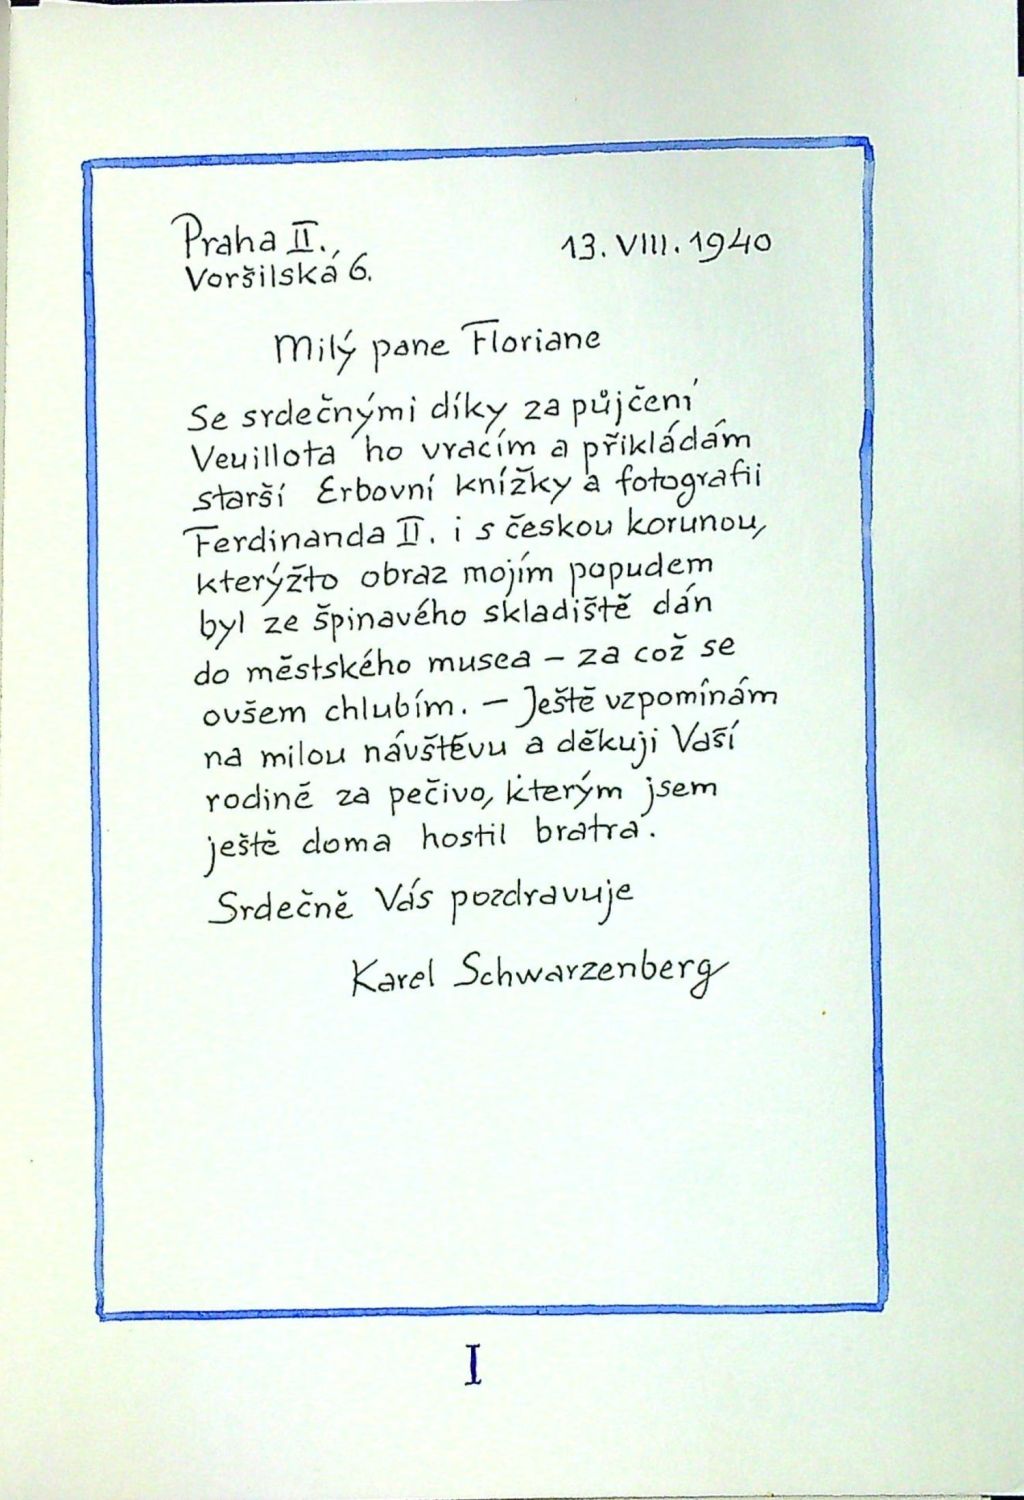 Praha II., 13. VIII. 1940
Voršilská 6.
Milý pane Floriane
Se srdečnými díky za půjčení
Veuillota ho vracím a přikládám
starší Erbovní knížky a fotografii
Ferdinanda II. i s českou korunou,
kterýžto obraz mojím popudem
byl ze špinavého skladiště dán
do městského musea – za což se
ovšem chlubím. – Ještě vzpomínám
na milou návštěvu a děkuji Vaší
rodině za pečivo, kterým jsem
ještě doma hostil bratra.
Srdečně Vás pozdravuje
Karel Schwarzenberg
I